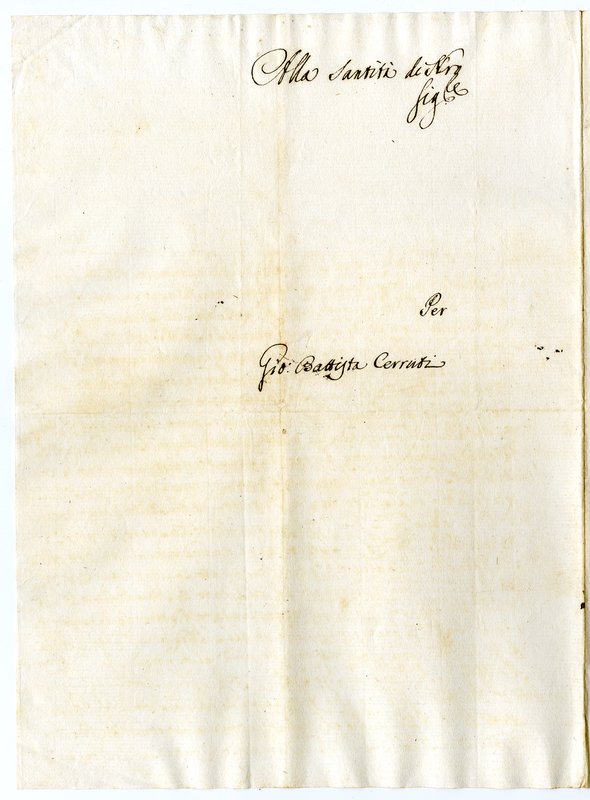 Alla Santità di Nro
Sigre
Per
Gio: Battista Cerruti